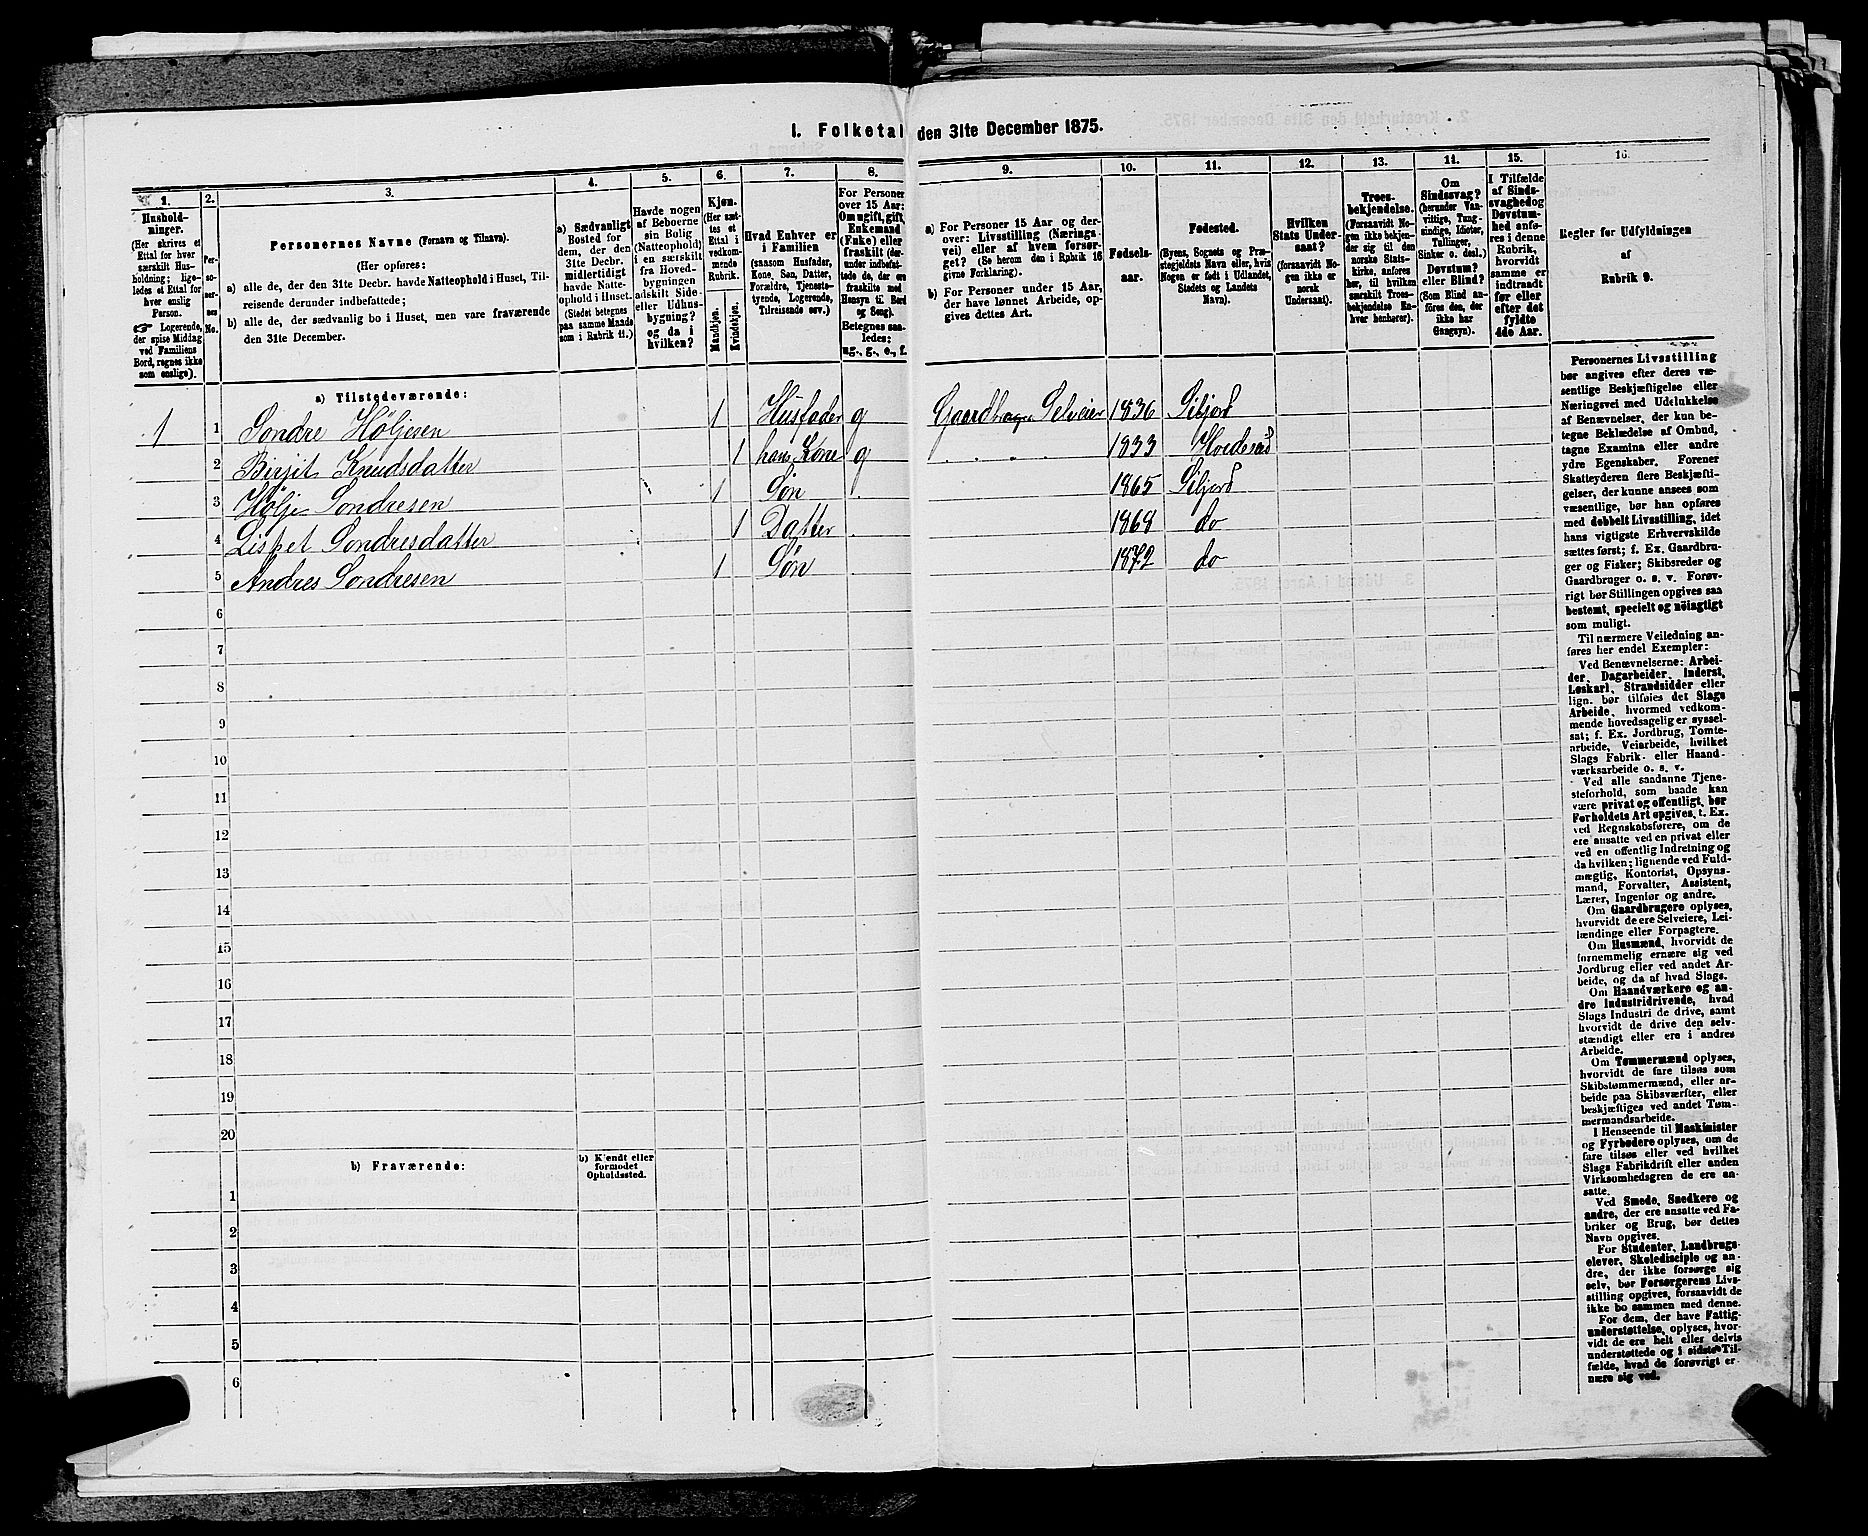 I. Folketal den 31te December 1875.
1. 2. 3. 4. 5. 6. 7. 8. 9. 10. 11. 12. 13. 14. 15. 16.
Hushold-
ninger.
(Her skrives et
Ettal for hver
særskilt Hus-
holdning; lige-
ledes et Ettal for
hver enslig
Person.
☞ Logerende,
der spise Middag
ved Familiens
Bord, regnes ikke
som enslige).
Per-
so-
ner-
nes
No.
Personernes Navne (Fornavn og Tilnavn).
(Her opføres:
a) alle de, der den 31te Decbr. havde Natteophold i Huset, Til-
reisende derunder indbefattede;
b) alle de, der sædvanlig bo i Huset, men vare fraværende
den 31te December.
a) Sædvanligt
Bosted for
dem, der den
31te Decbr.
midlertidigt
havde Natte-
ophold i Huset.
(Stedet betegnes
paa samme Maade
som i Rubrik 11.)
Havde nogen
af Beboerne
sin Bolig
(Natteophold)
i en særskilt
fra Hoved-
bygningen
adskilt Side-
eller Udhus-
bygning?
og da i
hvilken?
Kjøn.
(Her sæt-
tes et
Ettal i
vedkom-
mende
Rubrik.
Mandkjøn.
Kvindekjøn.
Hvad Enhver er
i Familien
(saasom Husfader,
Kone, Søn, Datter,
Forældre, Tjeneste-
tyende, Logerende,
Tilreisende osv.)
For Personer
over 15 Aar:
Om ugift, gift,
Enkemand
(Enke) eller
fraskilt (der-
under indbefat-
tede de, der ere
fraskilte med
Hensyn til Bord
og Seng).
Betegnes saa-
ledes:
ug., g., e., f.
a) For Personer 15 Aar og der-
over: Livsstilling (Nærings-
vei) eller af hvem forsør-
get? (Se herom den i Rubrik 16
givne Forklaring).
b) For Personer under 15 Aar,
der have lønnet Arbeide, op-
gives dettes Art.
Fødsels-
aar.
Fødested.
(Byens, Sognets og Præ-
stegjeldets Navn eller, hvis
Nogen er født i Udlandet,
Stedets og Landets
Navn).
Hvilken
Stats Under-
saat?
(forsaavidt No-
gen ikke er
norsk
Undersaat).
Troes-
bekjendelse.
(Forsaavidt No-
gen ikke bekjen-
der sig til den
norske Stats-
kirke, anføres
her, til hvilken
særskilt Troes-
bekjendelse En-
hver henhører).
Om
Sindssvag?
(herunder Van-
vittige, Tung-
sindige, Idioter,
Tullinger,
Sinker o. desl.)
Døvstum?
eller Blind?
(Som Blind an-
føres den, der
ikke har
Gangsyn).
I Tilfælde
af Sinds-
svaghed og
Døvstum-
hed anfø-
res i denne
Rubrik,
hvorvidt
samme er
indtraadt
før eller
efter det
fyldte
4de Aar.
Regler for Udfyldningen
af
Rubrik 9.
a) Tilstedeværende:
1 1 Søndre Høljesen 1 Husfader g Gaardbruger Selveier 1836 Siljord
2 Birjit Knudsdatter 1 hans Kone g 1833 Hvidesød
3 Hølje Sondresen 1 Søn 1865 Siljord
4 Lispet Sondresdatter 1 Datter 1868 do
5 Andres Sondresen 1 Søn 1872 do
6
7
8
9
10
11
12
13
14
15
16
17
18
19
20
b) Fraværende:
b) Kjendt eller
formodet
Opholdssted.
1
2
3
4
5
6
Personernes Livsstilling
bør angives efter deres væ-
sentlige Beskjæftigelse eller
Næringsvei med Udelukkelse
af Benævnelser, der kun be-
tegne Beklædelse af Ombud,
tagne Examina eller andre
ydre Egenskaber. Forener
Skatteyderen flere Beskjæfti-
gelser, der kunne ansees som
væsentlige, bør han opføres
med dobbelt Livsstilling, idet
hans vigtigste Erhvervskilde
sættes først; f. Ex. Gaardbru-
ger og Fisker; Skibsreder og
Gaardbruger o. s. v. Forøv-
rigt bør Stillingen opgives saa
bestemt, specielt og nøiagtigt
som muligt.
Til nærmere Veiledning an-
føres her endel Exempler:
Ved Benævnelserne: Arbei-
der, Dagarbeider, Inderst,
Løskarl, Strandsidder eller
lign. bør tilføies det Slags
Arbeide, hvormed vedkom-
mende hovedsagelig er syssel-
sat; f. Ex. Jordbrug, Tomte-
arbeide, Veiarbeide, hvilket
Slags Fabrik- eller Haand-
værksarbeide o. s. v.
Ved alle saadanne Tjene-
steforhold, som baade kan
være privat og offentligt, bør
Forholdets Art opgives, t. Ex.
ved Regnskabsførere, om de
ere ansatte ved en privat eller
ved en offentlig Indretning og
da hvilken; lignende ved Fuld-
mægtig, Kontorist, Opsyns-
mand, Forvalter, Assistent,
Lærer, Ingeniør og andre.
Om Gaardbrugere oplyses,
hvorvidt de ere Selveiere, Lei-
lændinge eller Forpagtere.
Om Husmænd, hvorvidt de
fornemmelig ernære sig ved
Jordbrug eller ved andet Ar-
beide, og da af hvad Slags.
Om Haandværkere og an-
dre Industridrivende, hvad
Slags Industri de drive, samt
hvorvidt de drive den selv-
stændigt eller ere i andres
Arbeide.
Om Tømmermænd oplyses,
hvorvidt de fare tilsøs som
Skibstømmermænd, eller ar-
beide paa Skibsværfter, eller
beskjæftiges ved andet Tøm-
mermandsarbeide.
I Henseende til Maskinister
og Fyrbødere oplyses, om de
fare tilsøs eller ved hvilket
Slags Fabrikdrift eller anden
Virksomhedsgren de ere an-
satte.
Ved Smede, Snedkere og
andre, der ere ansatte ved Fa-
briker og Brug, bør dettes
Navn opgives.
For Studenter, Landbrugs-
elever, Skoledisciple og an-
dre, der ikke forsørge sig
selv, bør Forsørgerens Livs-
stilling opgives, forsaavidt de
ikke bo sammen med denne.
For dem, der have Fattig-
understøttelse, oplyses, hvor-
vidt de ere helt eller delvis
understøttede og i sidste Til-
fælde, hvad de forøvrigt er-
nære sig ved.